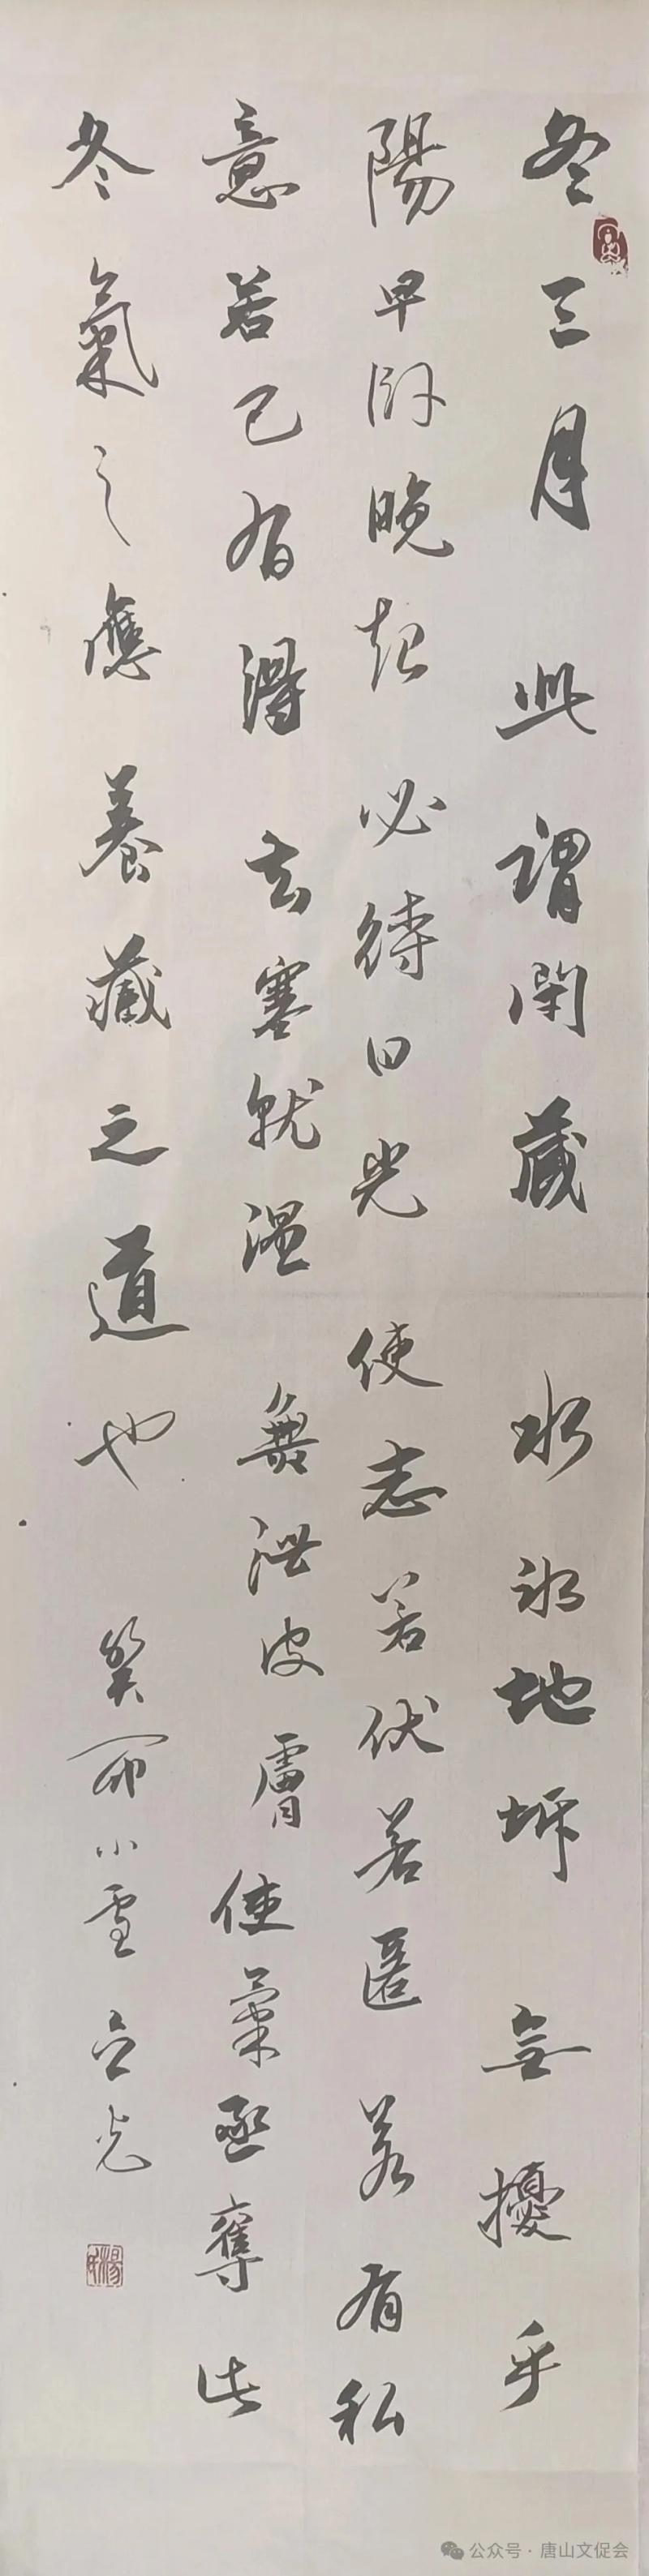 冬三月此謂閉藏水冰地坼無擾乎
陽早卧晚起必待日光使志若伏若匿若有私
意若已有得去寒就温無泄皮膚使氣亟奪此
冬氣之應養藏之道也癸卯小雪立光
公众号·唐山文促会